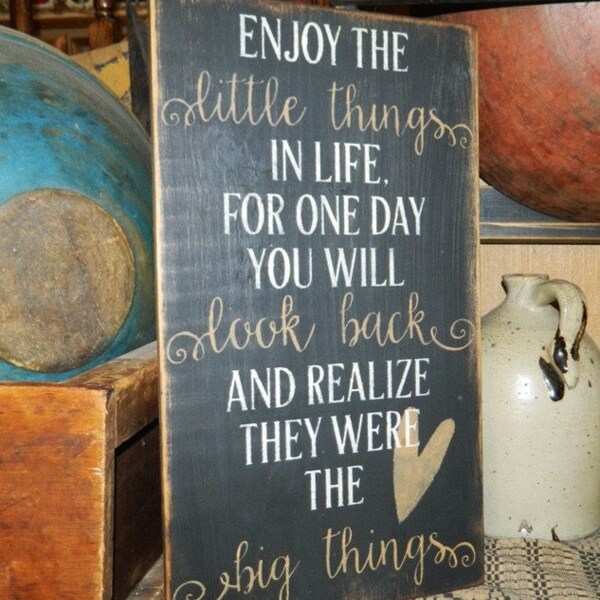 ENJOY THE
little things
IN LIFE,
FOR ONE DAY
YOU WILL
look back
AND REALIZE
THEY WERE
THE
big things